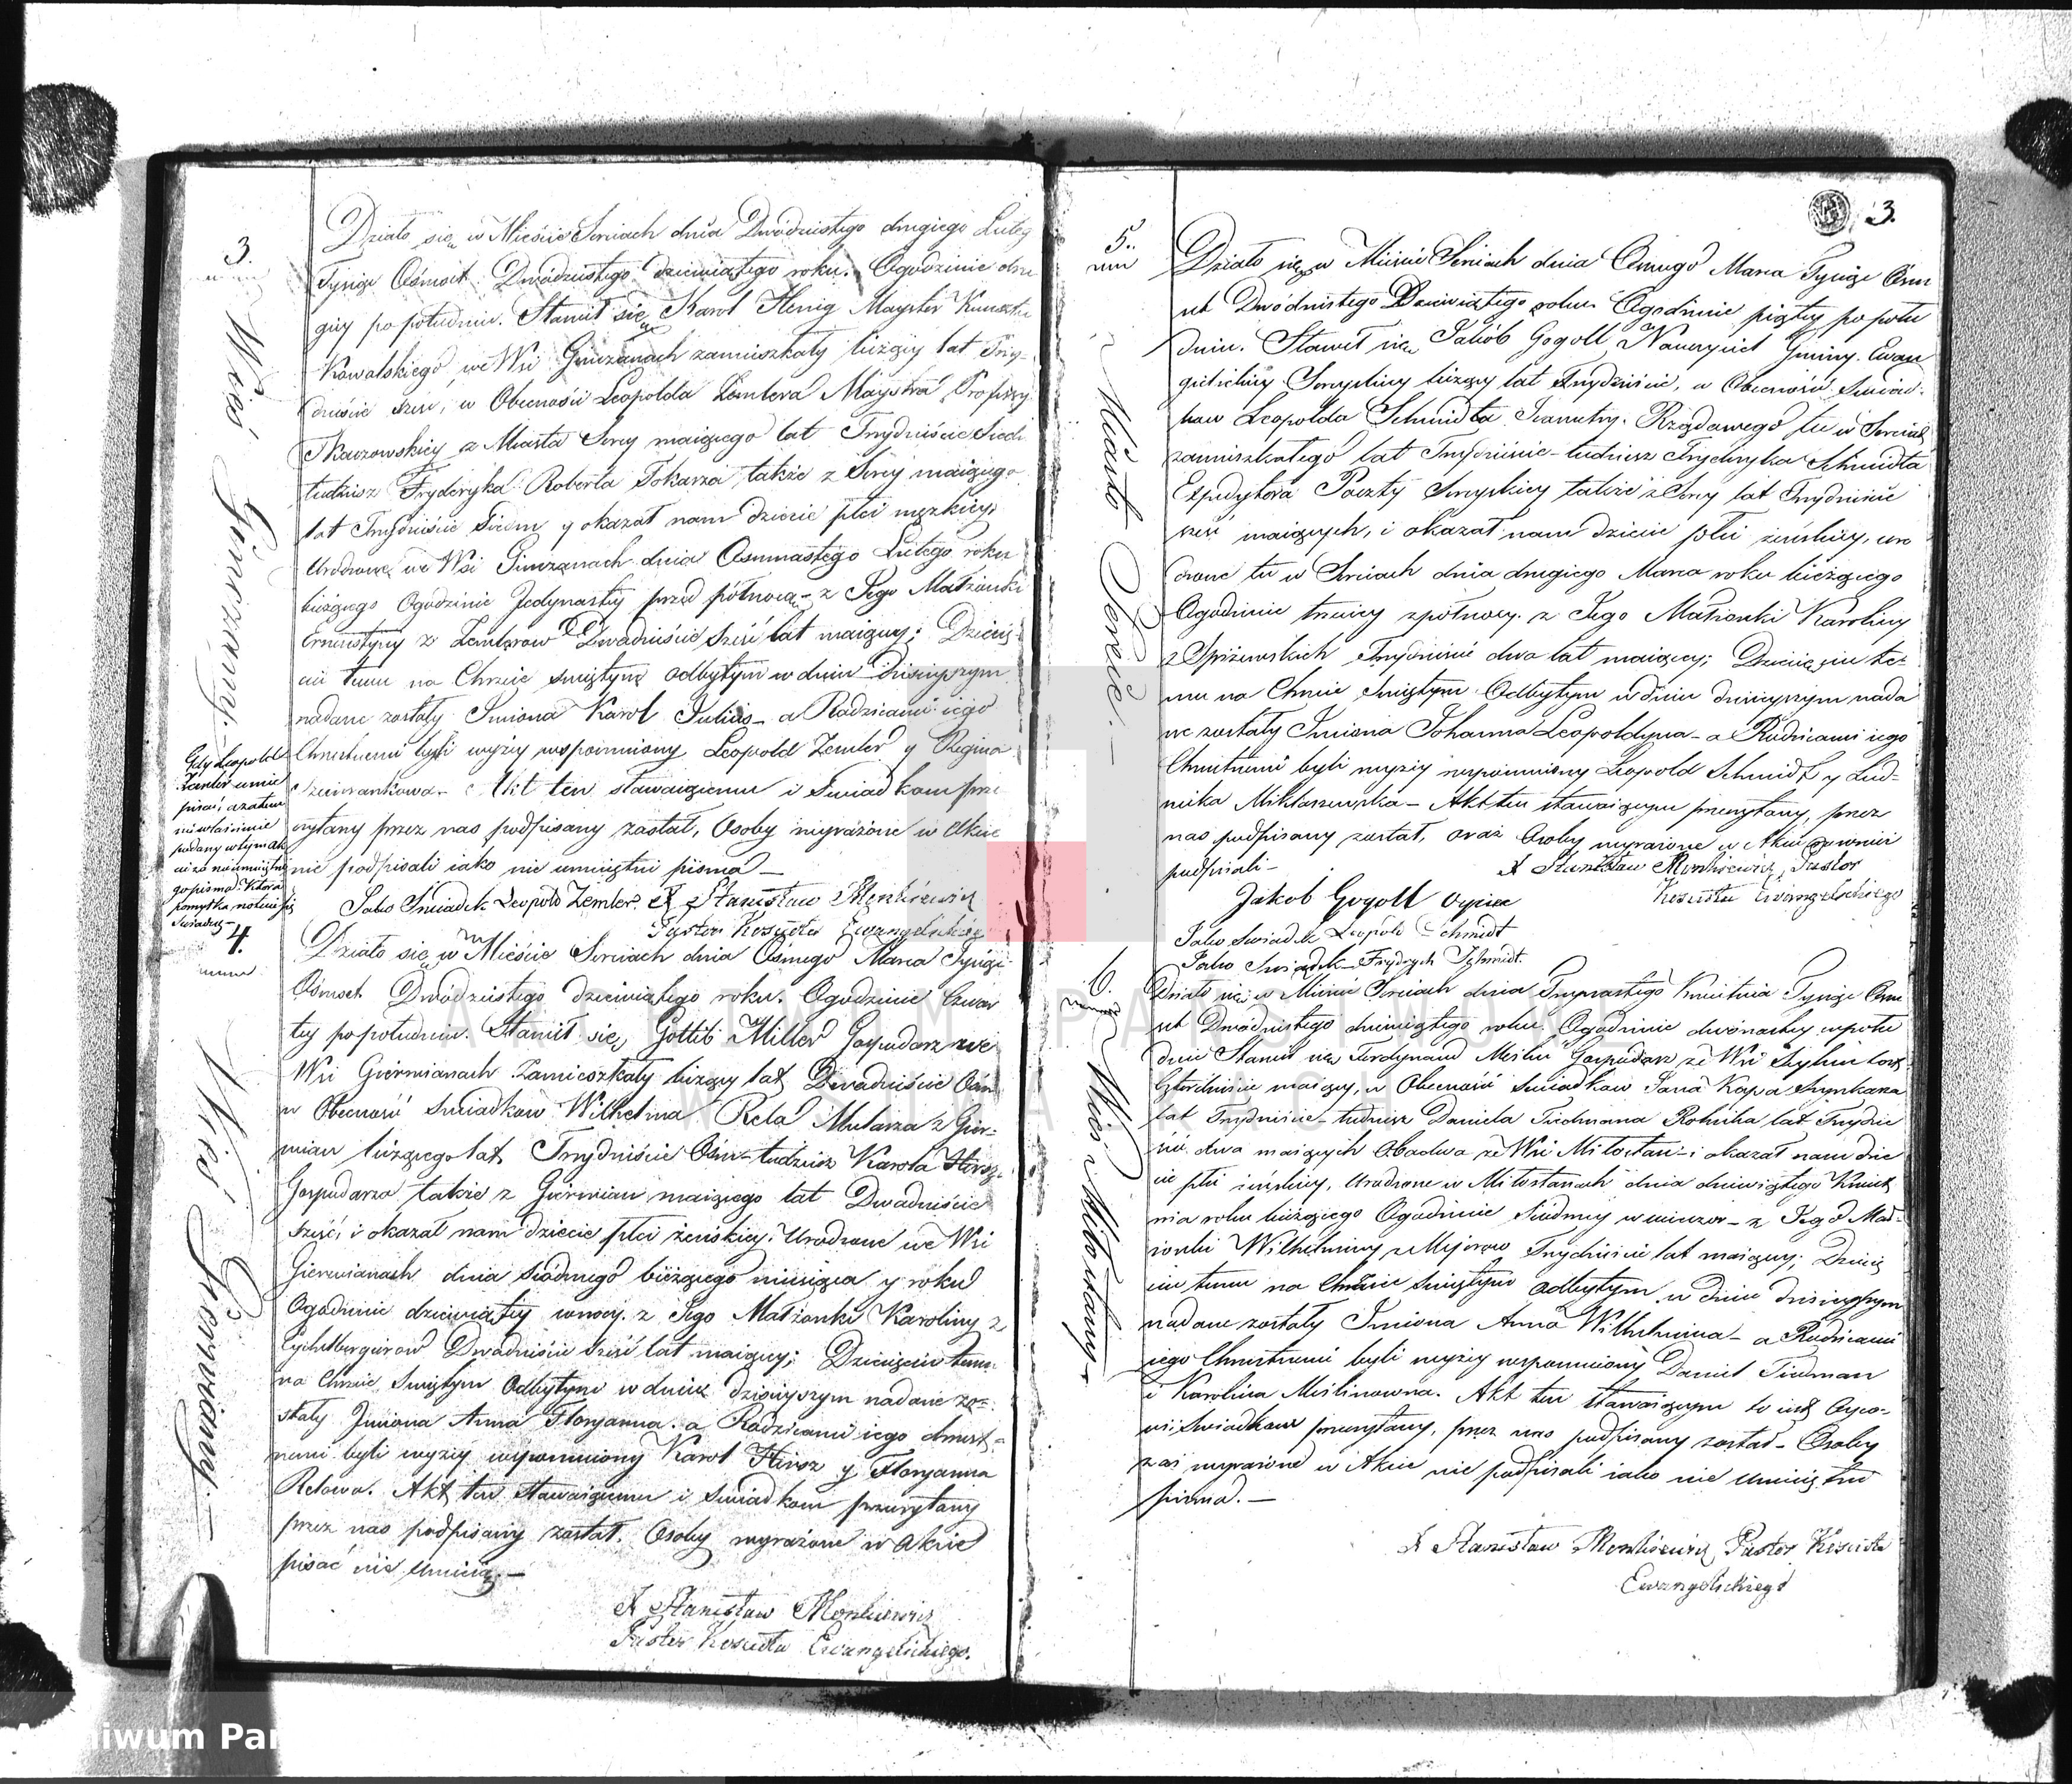 3.
Wieś Giwazany.
Działo się w Mieście Sereiach dnia Dwódziestego drugiego Luteg
Tysiąc Ośmset Dwódziestego dziewiątego roku. Ogodzinie dru
giey po południu. Stawił się Karol Henig Mayster Kunsztu
Kowalskiego, we Wsi Giwazanach zamieszkały liczący lat Trzy-
dzieście sześć, w Obecności Leopolda Zemlera Maystra Profeszy
Tkaczowskiey z Miasta Serey maiącego lat Trzydzieście Siedm
tudzież Fryderyka Roberta Tokarza także z Serey maiącego
lat Trzydzieście Siedm y okazał nam dziecie płci męzkiey,
Urodzone we Wsi Giwazanach dnia Osmnastego Lutego roku
bieżącego Ogodzinie Jedynastey przed północą z Jego Małżonki
Ernestyny z Zemlerow Dwadzieście sześć lat maiącey; Dziecię-
ciu temu na Chrzcie świętym odbytym w dniu dzisieyszym
nadane zostały Imiona Karol Julius - a Rodzicami iego
Chrzestnemi byli wyżey wspomniony Leopold Zemler y Regina
Akt ten stawaiącemu i Swiadkom prze
czytany przez nas podpisany został, Osoby wyrażone w Akcie
nie podpisali iako nie umieiętni pisma —
Gdy Leopold
Zemler umie
pisać, a zatem
niewłaśnie
podany w tym ak
cie za nieumieiętne
go pisma. Która
pomyłka notuie się
Swiadczę —
Jako Swiadek Leopold Zemler. X Stanisław Monkiewicz
Pastor Kościoła Ewangelickiego
4.
Wieś Gierwiany.
Działo się w Mieście Sereiach dnia Ósmego Marca Tysiąc
Ośmset Dwódziestego dziewiątego roku. Ogodzinie Czwar
tey po południu. Stawił się Gotlib Miller Gospodarz we
Wsi Gierwianach Zamieszkały liczący lat Dwadzieście Ośm
w Obecności Swiadkow Wilhelma Reta Mularza z Gier-
wian liczącego lat Trzydzieście Ośm - tudzież Karola Hirsz-
Gospodarza także z Gierwian maiącego lat Dwadzieście
sześć, i okazał nam dziecie płci żeńskiey, Urodzone we Wsi
Gierwianach dnia siódmego bieżącego miesiąca y roku
Ogodzinie dziewiątey wnocy z Jego Małżonki Karoliny z
Dwadzieście sześć lat maiącey; Dziecięciu temu
na Chrzcie Swiętym Odbytym w dniu dzisieyszym nadane zo-
stały Imiona Anna Floryanna. a Rodzicami iego chrzest-
nemi byli wyżey wspomniony Karol Hirsz y Floryanna
Retowa. Akt ten stawaiącemu i Swiadkom przeczytany
przez nas podpisany został. Osoby wyrażone w Akcie
pisać nie Umieią —
X Stanisław Monkiewicz
Pastor Kościoła Ewangelickiego.
3.
5.
Miasto Sereie.
Działo się w Mieście Sereiach dnia Osmego Marca Tysiąc Ośm
set Dwódziestego Dziewiątego roku Ogodzinie piątey po połu
dniu. Stawił się Jakób Gogoll Nauczyciel Gminy Ewan
gielickiey Sereyskiey liczący lat Trzydzieście, w Obecności Swiad-
kow Leopolda Schmidta Rządowego tu w Sereiach
zamieszkałego lat Trzydzieście - tudzież Fryderyka Schmidta
Expedytora Poczty Sereyskiey także z Serey lat Trzydzieście
sześć maiących, i okazał nam dziecie płci żeńskiey, uro
dzone tu w Sereiach dnia drugiego Marca roku bieżącego
Ogodzinie trzeciey z północy z Jego Małżonki Karoliny
z Spiżewskich Trzydzieście dwa lat maiącey; Dziecięciu te-
mu na Chrzcie Swiętym Odbytym w dniu dzisieyszym nada
ne zostały Imiona Johanna Leopoldyna - a Rodzicami iego
Chrzestnemi byli wyżey wspomniony Leopold Schmidt y Lud-
wika Mikłaszewska - Akt ten stawaiącym przeczytany, przez
nas podpisany został, oraz Osoby wyrażone w Akcie rownież
podpisali -
X Stanisław Monkiewicz, Pastor
Kościoła Ewangelickiego
Jakob Gogoll Oyciec
Jako Swiadek Leopold Schmidt
Jako Swiadek Frydrych Schmidt.
6.
Wieś Miłostany
Działo się w Mieście Sereiach dnia Trzynastego Kwietnia Tysiąc Ośm
set Dwódziestego dziewiątego roku. Ogodzinie dwónastey w połu
dnie Stawił się Ferdynand Meslin Gospodarz ze Wsi
Czterdzieście maiący, w Obecności Swiadkow Jana Kaspa Szynkarza
lat Trzydzieście - tudzież Daniela Tiedmana Rolnika lat Trzydzie
ście dwa maiących Obadwa ze Wsi Miłostan - i okazał nam dzie
cie płci żeńskiey, Urodzone w Miłostanach dnia dziewiątego Kwiet
nia roku bieżącego Ogodzinie Siódmey w wieczor - z Jego Mał-
żonki Wilhelminy z Meierow Trzydzieście lat maiącey; Dzieci
ciu temu na Chrzcie świętym odbytym w dniu dzisieyszym
nadane zostały Imiona Anna Wilhelmina - a Rodzicami
iego Chrzestnemi byli wyżey wspomniony Daniel Tiedman
i Karolina Meslinowna. Akt ten stawaiącym to iest Oyco-
wi i Swiadkom przeczytany, przez nas podpisany został - Osoby
zaś wyrażone w Akcie nie podpisali iako nie umieiętni
pisma. —
X Stanisław Monkiewicz Pastor Kościoła
Ewangelickiego
Archiwum Pań